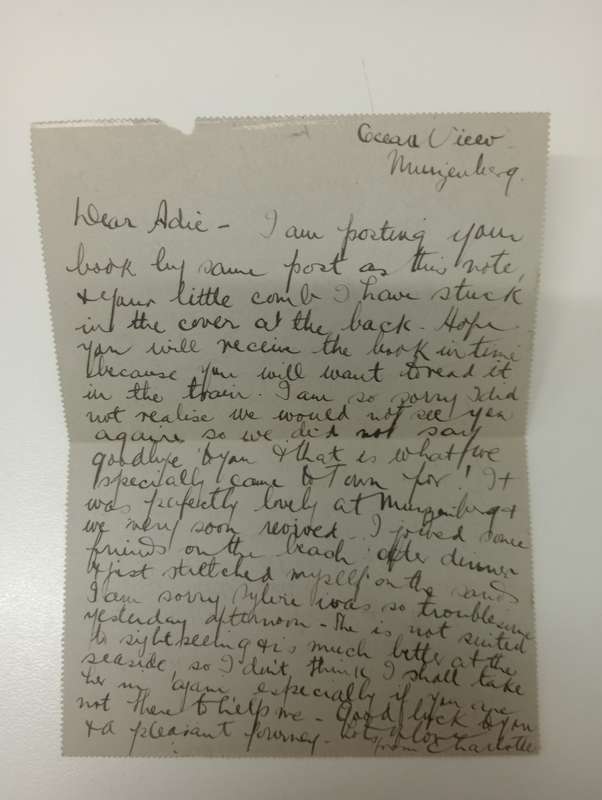 Ocean View
Muizenberg.
Dear Adie - I am posting your
book by same post as this note,
& your little comb I have stuck
in the cover at the back. Hope
you will receive the book in time
because you will want to read it
in the train. I am so sorry I did
not realise we would not see you
again so we did not say
goodbye to you & that is what we
specially came to Town for! It
was perfectly lovely at Muizenberg &
we were soon revived. I joined some
friends on the beach after dinner
& just stretched myself on the sands
I am sorry Sylvie was so troublesome
yesterday afternoon - She is not suited
to sightseeing & is much better at the
seaside, so I don't think I shall take
her in again, especially if you are
not there to help me - Good luck to you
& a pleasant journey - love
from Charlotte